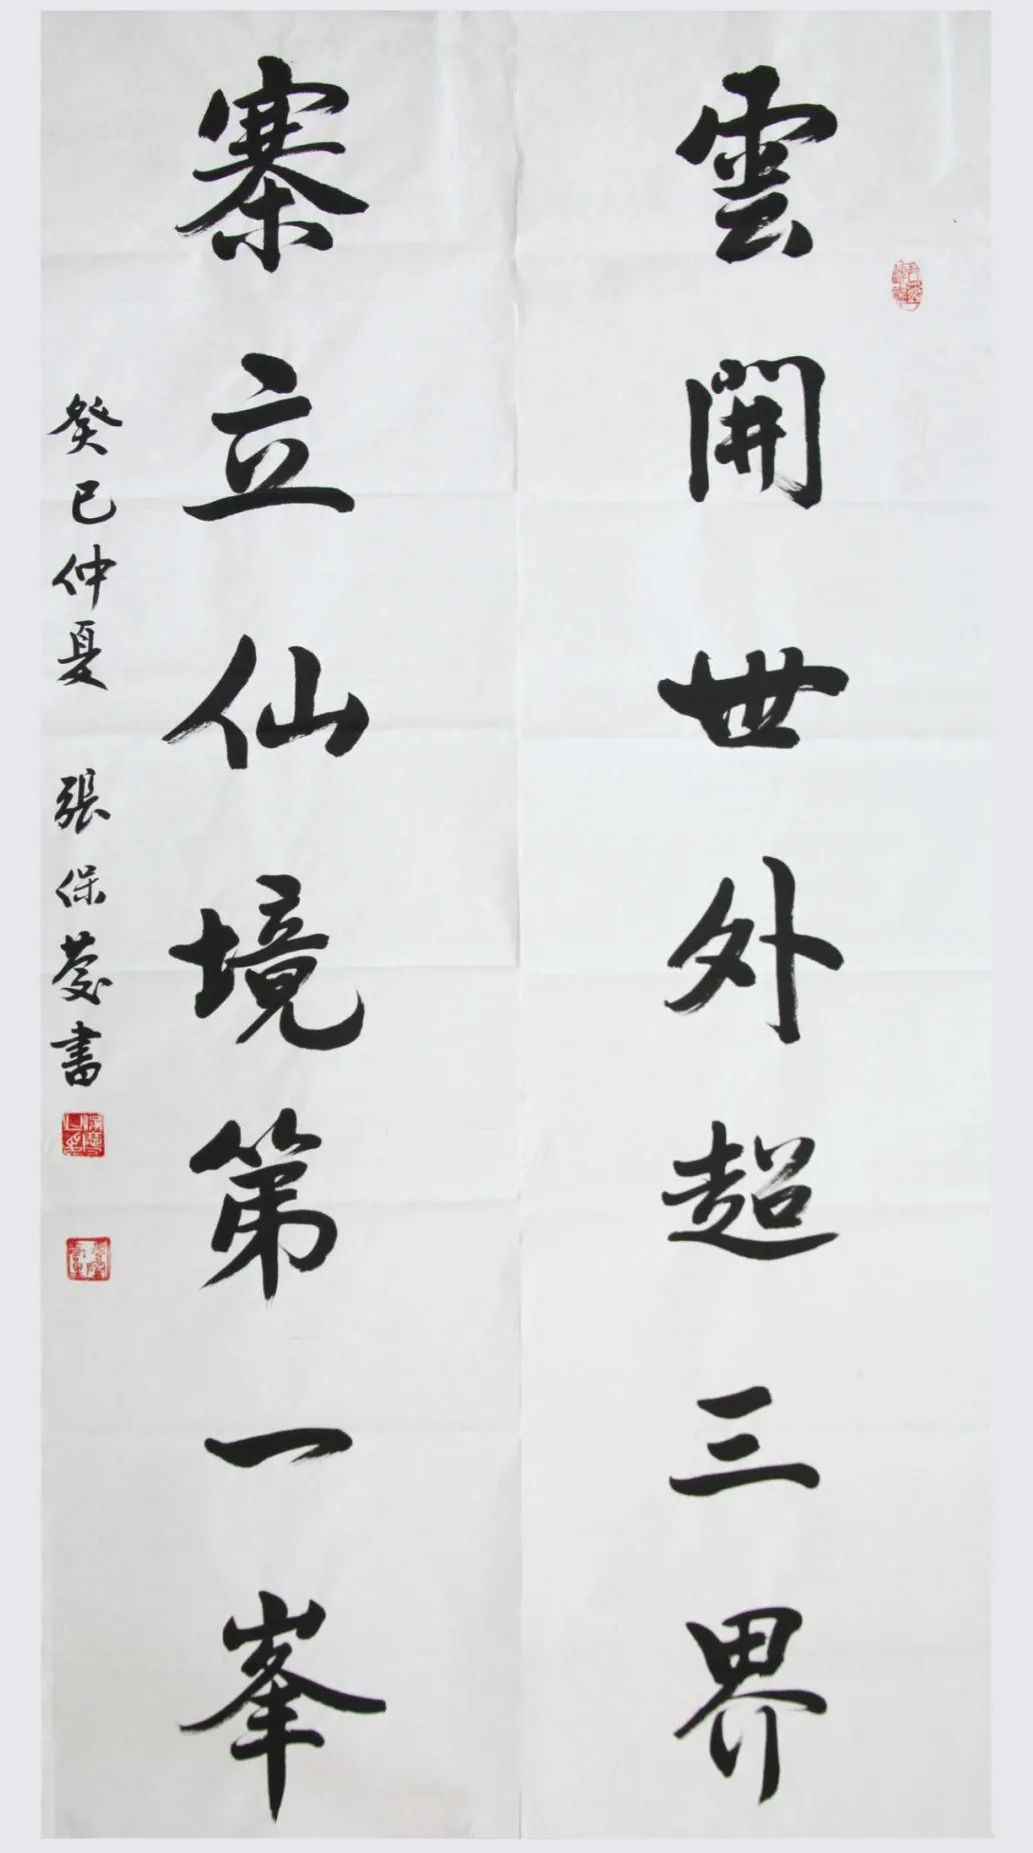 雲開世外超三界
寨立仙境第一峯
癸巳仲夏 張保慶書